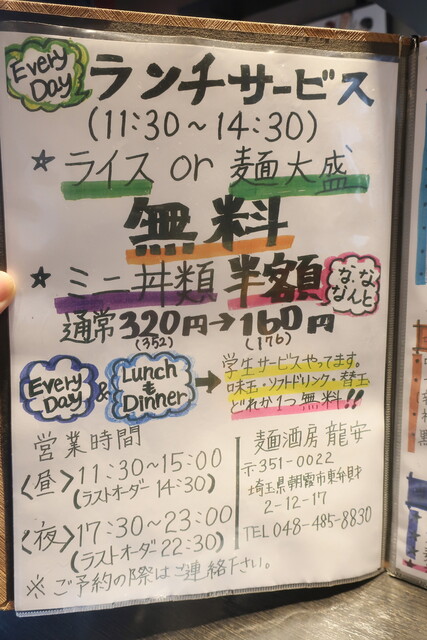 Every Day ランチサービス
(11:30～14:30)
★ライス or 麺大盛
無料
★ミニ丼類 半額 な、な なんと
通常320円→160円
(352) (176)
Every Day & Lunch も Dinner → 学生サービスやってます。
味玉・ソフトドリンク・替玉
どれか1つ無料!!
営業時間
〈昼〉11:30～15:00
(ラストオーダー14:30)
〈夜〉17:30～23:00
(ラストオーダ22:30)
※ご予約の際はご連絡下さい。
麺酒房 龍安
〒351-0022
埼玉県朝霞市東弁財
2-12-17
TEL 048-485-8830